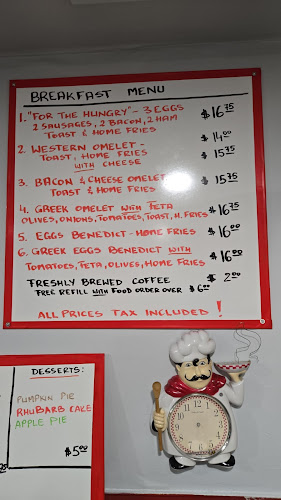 BREAKFAST MENU
1. "FOR THE HUNGRY" - 3 EGGS
2 SAUSAGES, 2 BACON, 2 HAM $16.75
TOAST & HOME FRIES
2. WESTERN OMELET - $14.00
TOAST, HOME FRIES $15.75
WITH CHEESE
3. BACON & CHEESE OMELET $15.75
TOAST & HOME FRIES
4. GREEK OMELET WITH FETA $16.75
OLIVES, ONIONS, TOMATOES, TOAST, H. FRIES
5. EGGS BENEDICT - HOME FRIES $16.00
6. GREEK EGGS BENEDICT WITH $16.00
TOMATOES, FETA, OLIVES, HOME FRIES
FRESHLY BREWED COFFEE $2.00
FREE REFILL WITH FOOD ORDER OVER $6.00
ALL PRICES TAX INCLUDED!
DESSERTS:
PUMPKIN PIE
RHUBARB CAKE
APPLE PIE
$5.00